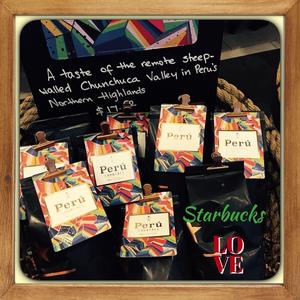 A taste of the remote steep-
walled Chunchuca Valley in Peru's
Northern Highlands
Perú
Perú
Perú
Perú
Perú
Perú
Perú
Starbucks
LO
VE